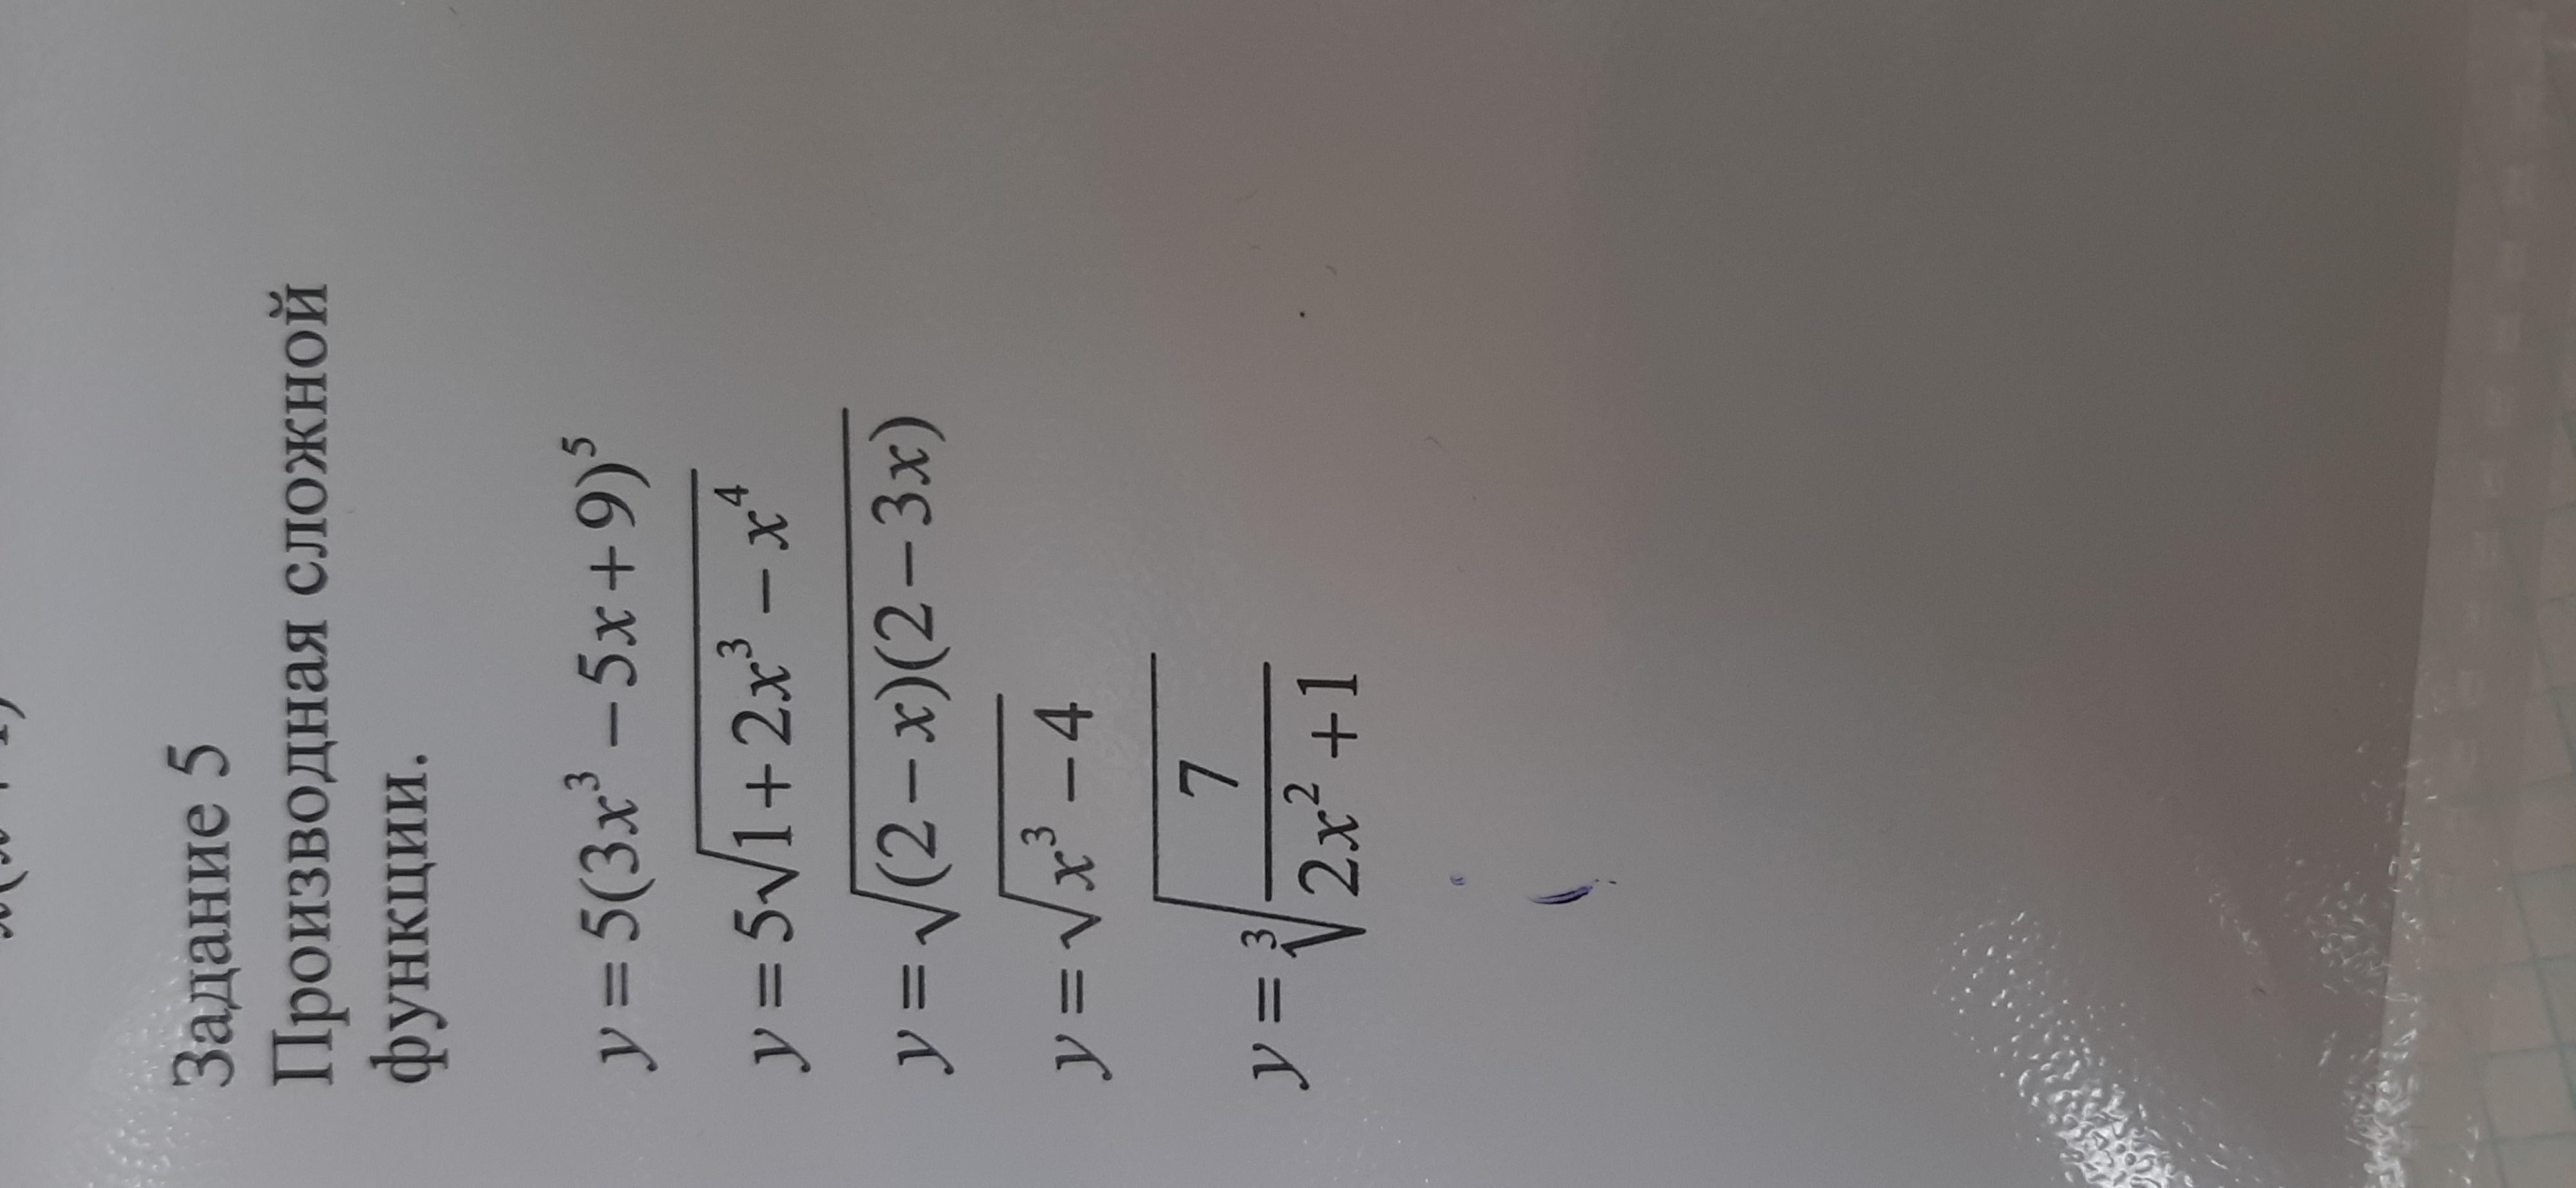 Задание 5
Производная сложной
функции.
y = 5(3x³ − 5x + 9)⁵
y = 5√(1 + 2x³ − x⁴)
y = √((2 − x)(2 − 3x))
y = √(x³ − 4)
y = ∛(7/(2x² + 1))